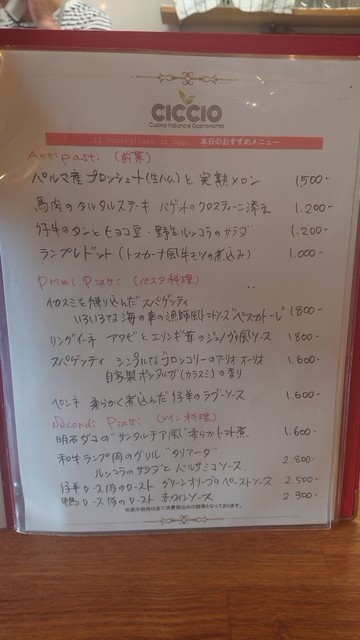 CICCIO
Cucina Italiana e Gastronomia
Il Consigliato di Oggi 本日のおすすめメニュー
Antipasti (前菜)
パルマ産プロシュート(生ハム)と完熟メロン 1500-
馬肉のタルタルステーキ バゲットのクロスティーニ添え 1.200-
仔牛のタンとヒヨコ豆・野生ルッコラのサラダ 1.200-
ランプレドット(トスカーナ風牛モツの煮込み) 1.000-
Primi Piatti (パスタ料理)
イカスミを練り込んだスパゲッティ
いろいろな海の幸の漁師風トマトソース"ペスカトーレ" 1800-
リングイーネ アワビとエリンギ茸のジェノヴァ風ソース 1800-
スパゲッティ シンプルなブロッコリーのアーリオオーリオ 1.600-
自家製ボッタルガ(カラスミ)の香り
ペンネ 柔らかく煮込んだ仔羊のラグーソース 1.600-
Secondi Piatti (メイン料理)
明石ダコの"サンタルチア風"柔らかトマト煮 1.600-
和牛ランプ肉のグリル"タリアータ" 2.800-
ルッコラのサラダとバルサミコソース
仔羊ロース肉のロースト グリーンオリーブのペーストソース 2.500-
鴨ロース肉のロースト 赤ワインソース 2.300-
※表示価格は全て消費税込みの価格となっております。